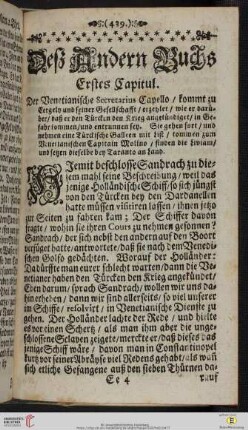 (439.)
Deß Andern Buchs
Erstes Capitul.
Der Venetianische Secretarius Capello / kommt zu
Tergely und seiner Gesellschafft / erzehlet / wie er darü-
ber / daß er den Türcken den Krieg angekündiget / in Ge-
fahr kommen / und entrunnen sey. Sie gehen fort / und
nehmen eine Türckische Galleen mit list / kommen zum
Venetianischen Capitain Molino / finden die Livian /
und setzen dieselbe bey Taranto an land.
HJemit beschlosse Sandrach zu die-
sem mahl seine Beschreibung / weil das
jenige Holländische Schiff / so sich jüngst
von den Türcken bey den Dardanellen
hatte müssen visitiren lassen / ihnen jetzo
zur Seiten zu fahren kam; Der Schiffer davon
fragte / wohin sie ihren Cours zu nehmen gesonnen?
Sandrach / der sich nebst den andern auf den Boort
verfüget hatte / antwortete / daß sie nach dem Venedi-
schen Golfo gedächten. Worauf der Holländer:
Da dürffte man eurer schlecht warten / dann die Ve-
netianer haben den Türcken den Krieg angekündet.
Eben darum / sprach Sandrach / wollen wir uns da-
hin erheben / dann wir sind allerseits / so viel unserer
in Schiffe / resolvirt / in Venetianische Dienste zu
gehen. Der Holländer lachte der Rede / und hielte
es vor einen Schertz / als man ihm aber die unge-
schlossene Sclaven zeigete / merckte er / daß dieses das
jenige Schiff wäre / davon man in Constantinopel
kurtz vor seiner Abräyse viel Redens gehabt / als wañ
sich etliche Gefangene auß den sieben Thürnen da-
Ee 4
rauf